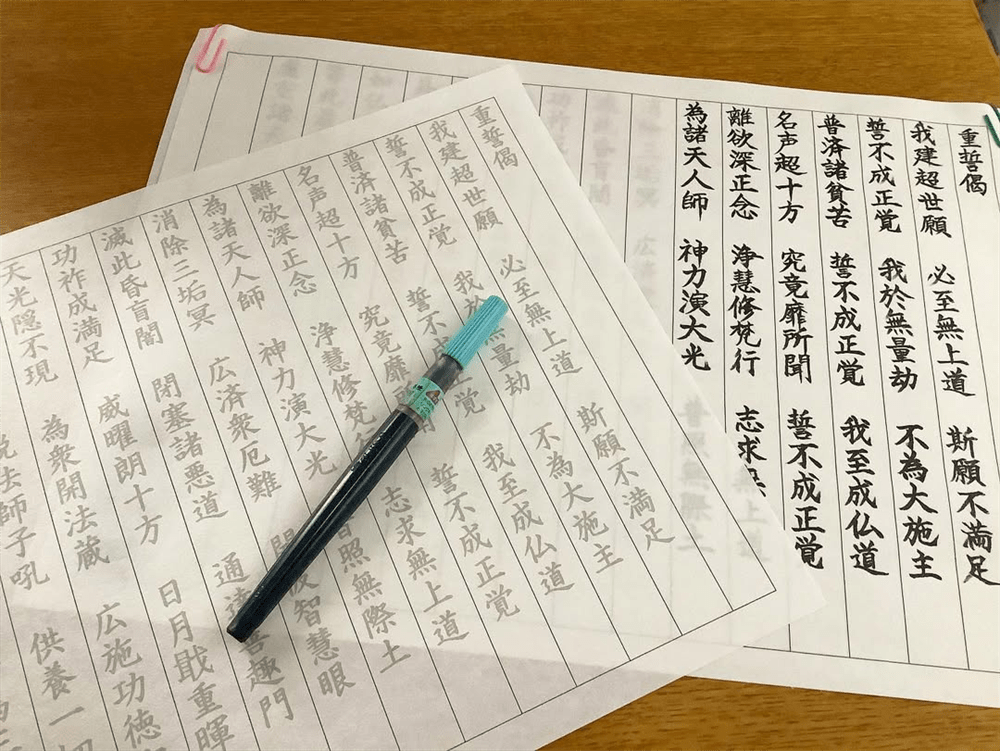 重誓偈
我建超世願 必至無上道 斯願不満足
誓不成正覚 我於無量劫 不為大施主
普済諸貧苦 誓不成正覚 我至成仏道
名声超十方 究竟靡所聞 誓不成正覚
離欲深正念 浄慧修梵行 志求無上道
為諸天人師 神力演大光
重誓偈
我建超世願 必至無上道 斯願不満足
誓不成正覚 我於無量劫 不為大施主
普済諸貧苦 誓不覚 我至成仏道
名声超十方 究竟靡 誓不成正覚
離欲深正念 浄慧修梵行 志求無上道
為諸天人師 神力演大光 普照無際土
消除三垢冥 広済衆厄難 開彼智慧眼
滅此昏盲闇 閉塞諸悪道 通達善趣門
功祚成満足 威曜朗十方 日月戢重暉
天光隠不現 為衆開法蔵 広施功徳
説法師子吼
供養一切